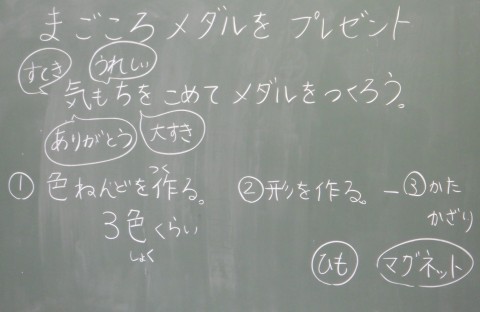 まごころメダルを プレゼント
すてき うれしい
気もちを こめて メダルをつくろう。
ありがとう 大すき
① 色ねんどを作る。 ②形を作る。 ー③かた
つく
3色くらい かざり
しょく
ひも マグネット